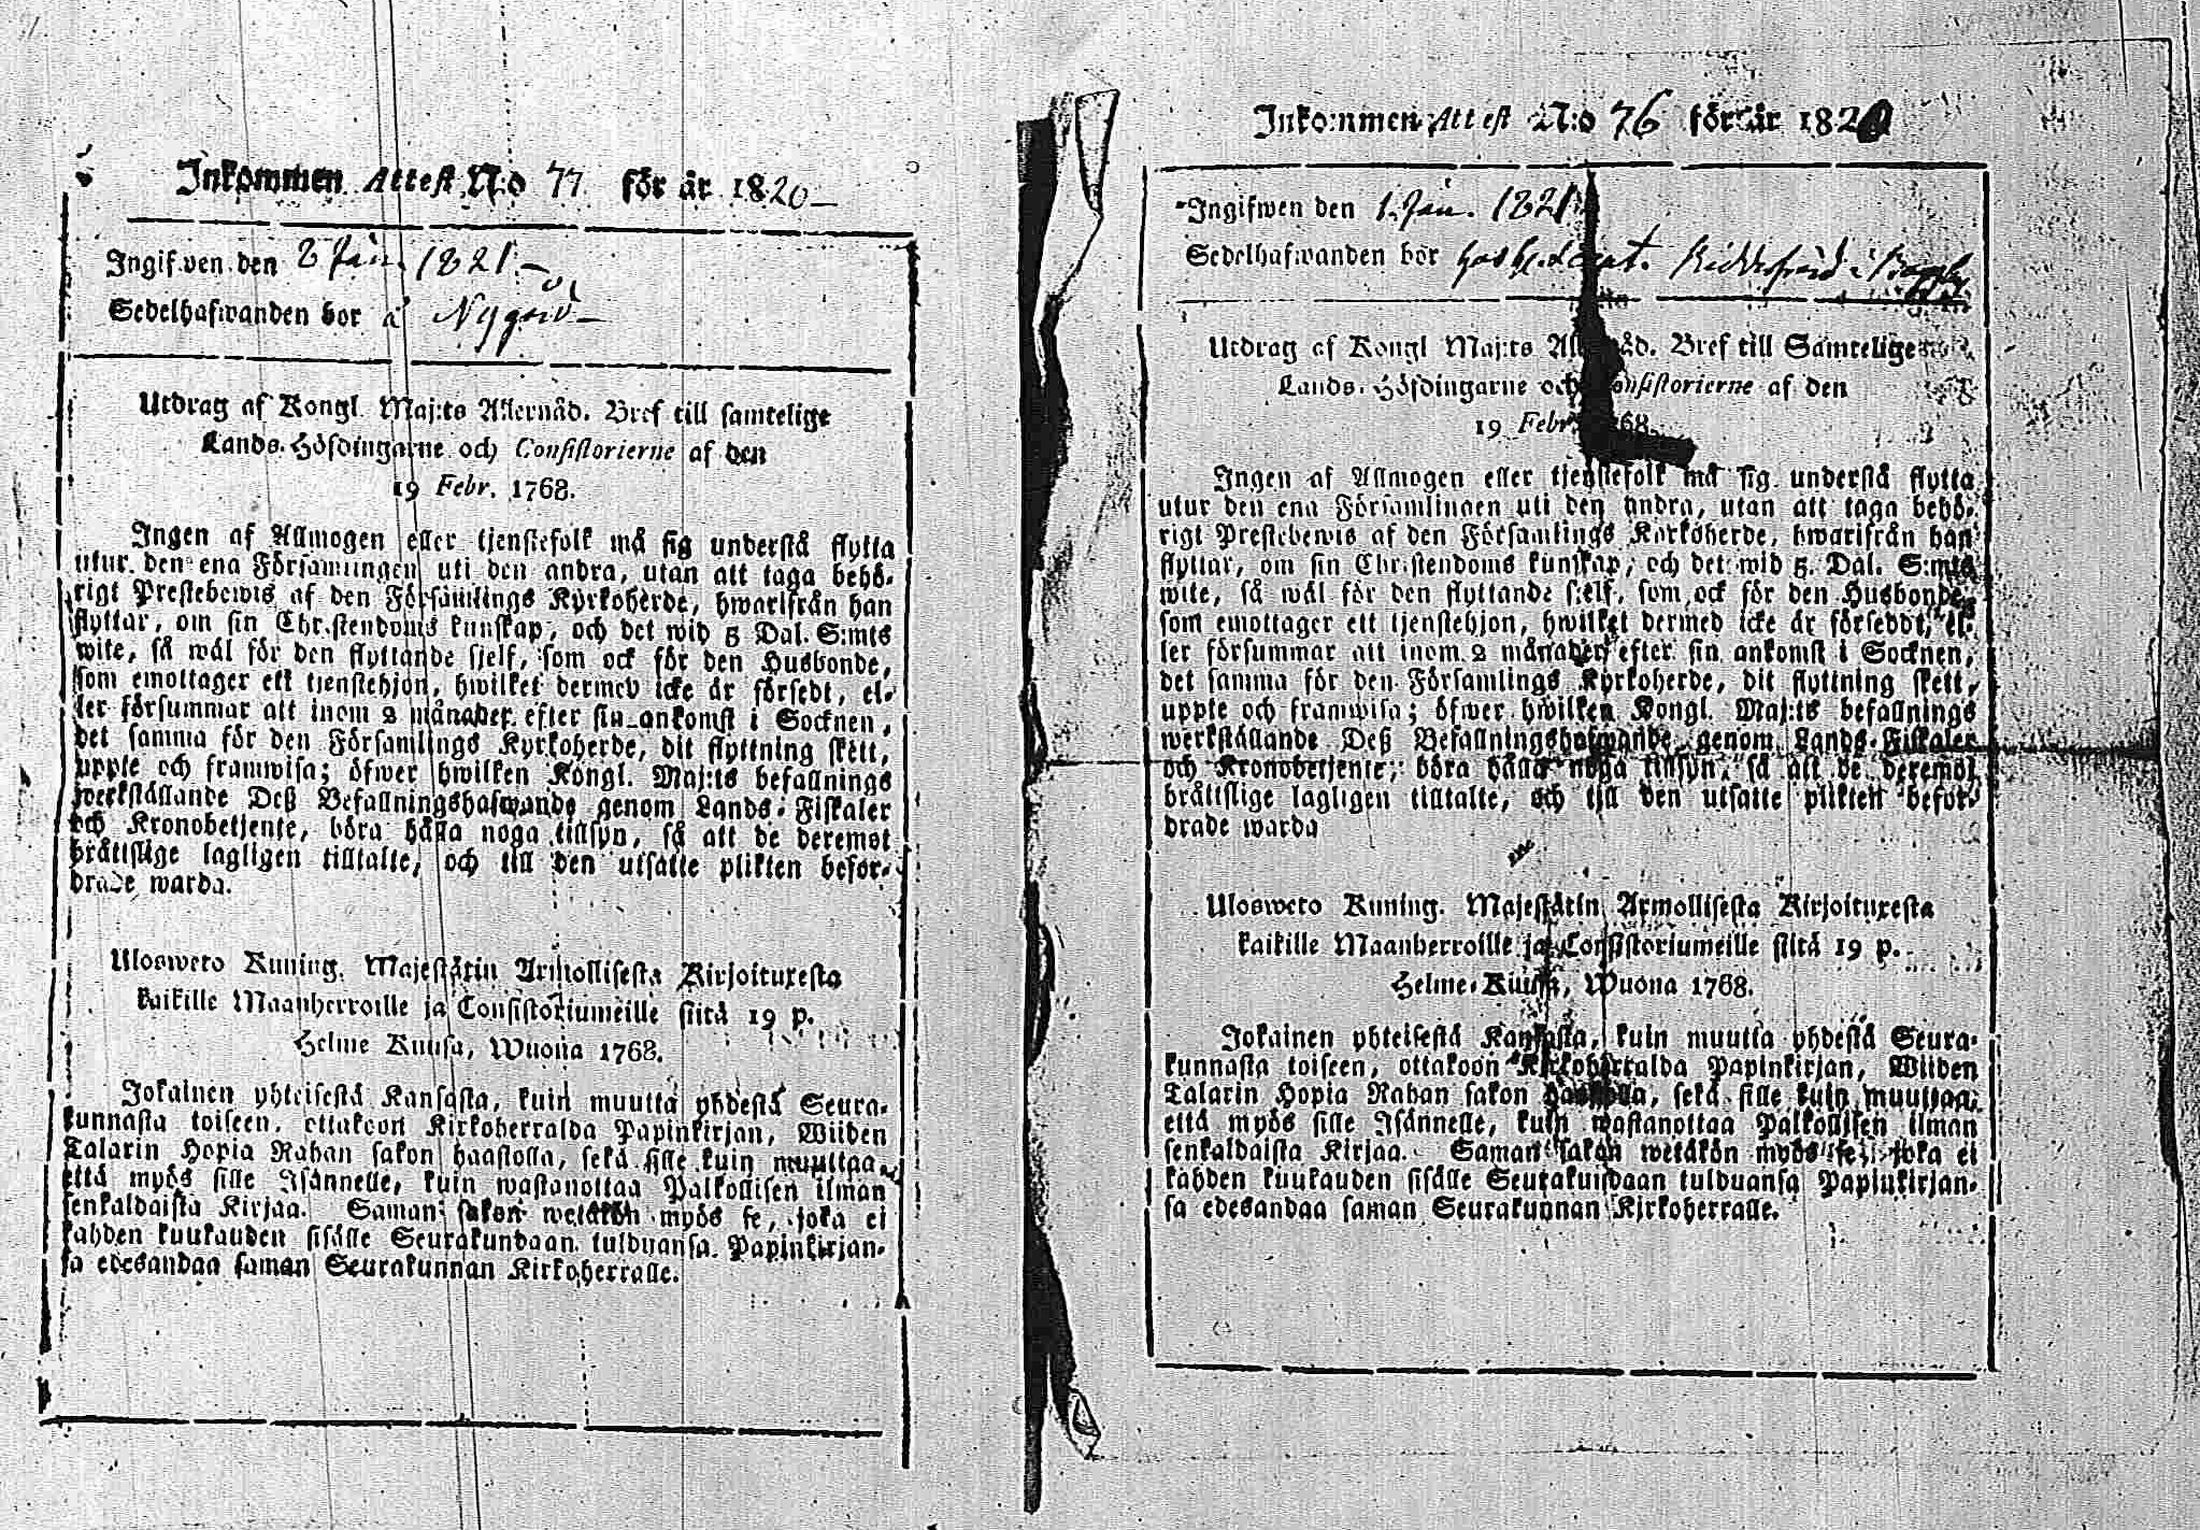 Inkommen Attest N:o 77 för år 1820
Ingifwen den 8 Jan. 1821.
Sedelhafwanden bor å Nygård
Utdrag af Kongl. Maj:ts Allernåd. Bref till samtelige
Lands-Höfdingarne och Consistorierne af den
19 Febr. 1768.
Ingen af Allmogen eller tjenstefolk må sig understå flytta
utur den ena Församlingen uti den andra, utan att taga behö-
rigt Prestebewis af den Församlings Kyrkoherde, hwarifrån han
flyttar, om sin Christendoms kunskap, och det wid 5 Dal. S:mts
wite, så wäl för den flyttande sjelf, som ock för den Husbonde,
som emottager ett tjenstehjon, hwilket dermed icke är försedt, el-
ler försummar att inom 2 månader efter sin ankomst i Socknen,
det samma för den Församlings Kyrkoherde, dit flyttning skett,
uppte och framwisa; öfwer hwilken Kongl. Maj:ts befallnings
werkställande Deß Befallningshafwande genom Lands-Fiskaler
och Kronobetjente, böra hålla noga tillsyn, så att de deremot
bråttslige lagligen tilltalte, och till den utsatte plikten befor-
drade warda.
Ulosweto Kuning. Majestätin Armollisesta Kirjoituxesta
kaikille Maanherroille ja Consistoriumeille siitä 19 p.
Helme Kuusa, Wuona 1768.
Jokainen yhteisestä Kansasta, kuin muutta yhdestä Seura-
kunnasta toiseen, ottakoon Kirkoherralda Papinkirjan, Wiiden
Talarin Hopia Rahan sakon haastolla, sekä sille kuin muuttaa,
että myös sille Isännelle, kuin wastanottaa Palkollisen ilman
senkaldaista Kirjaa. Saman sakon wetäkön myös se, joka ei
kahden kuukauden sisälle Seurakundaan tulduansa Papinkirjan-
sa edesandaa saman Seurakunnan Kirkoherralle.
Inkommen Attest N:o 76 för år 1820
Ingifwen den 1. Jan. 1821
Sedelhafwanden bor hos
Utdrag af Kongl Maj:ts Bref till Samtelige
Lands-Höfdingarne och Consistorierne af den
19 Febr. 1768.
Ingen af Allmogen eller tjenstefolk må sig understå flytta
utur den ena Församlingen uti den andra, utan att taga behö-
rigt Prestebewis af den Församlings Kyrkoherde, hwarifrån han
flyttar, om sin Christendoms kunskap, och det wid 5. Dal. S:mts
wite, så wäl för den flyttande sjelf, som ock för den Husbonde,
som emottager ett tjenstehjon, hwilket dermed icke är försedt, el-
ler försummar att inom 2 månader efter sin ankomst i Socknen,
det samma för den Församlings Kyrkoherde, dit flyttning skett,
uppte och framwisa; öfwer hwilken Kongl. Maj:ts befallnings
werkställande Deß Befallningshafwande genom Lands-Fiskaler
och Kronobetjente, böra hålla noga tillsyn, så att de deremot
bråttslige lagligen tilltalte, och till den utsatte plikten befor-
drade warda
Ulosweto Kuning. Majestätin Armollisesta Kirjoituxesta
kaikille Maanherroille ja Consistoriumeille siitä 19 p.
Helme-Kuusa, Wuona 1768.
Jokainen yhteisestä Kansasta, kuin muutta yhdestä Seura-
kunnasta toiseen, ottakoon Kirkoherralda Papinkirjan, Wiiden
Talarin Hopia Rahan sakon haastolla, sekä sille kuin muuttaa,
että myös sille Isännelle, kuin wastanottaa Palkollisen ilman
senkaldaista Kirjaa. Saman sakon wetäkön myös se, joka ei
kahden kuukauden sisälle Seurakundaan tulduansa Papinkirjan-
sa edesandaa saman Seurakunnan Kirkoherralle.